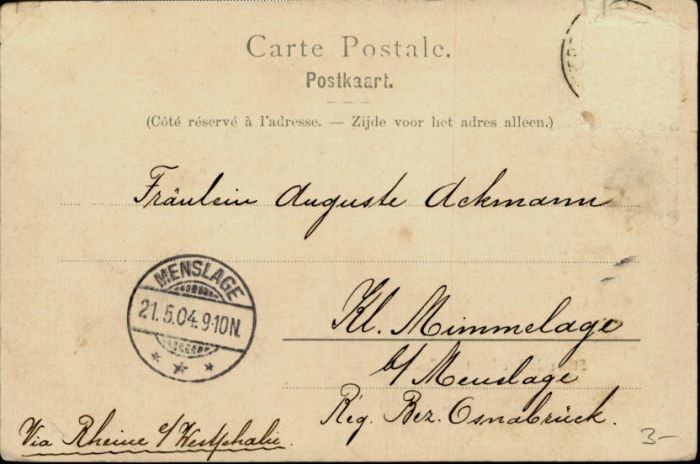 Carte Postale.
Postkaart.
(Côté réservé à l'adresse. — Zijde voor het adres alleen.)
Fräulein Auguste Ackmann
MENSLAGE
21.5.04.9-10N.
Kl. Mimmelage
b/ Menslage
Reg. Bez. Osnabrück.
Via Rheine i/Westphalie.
3-